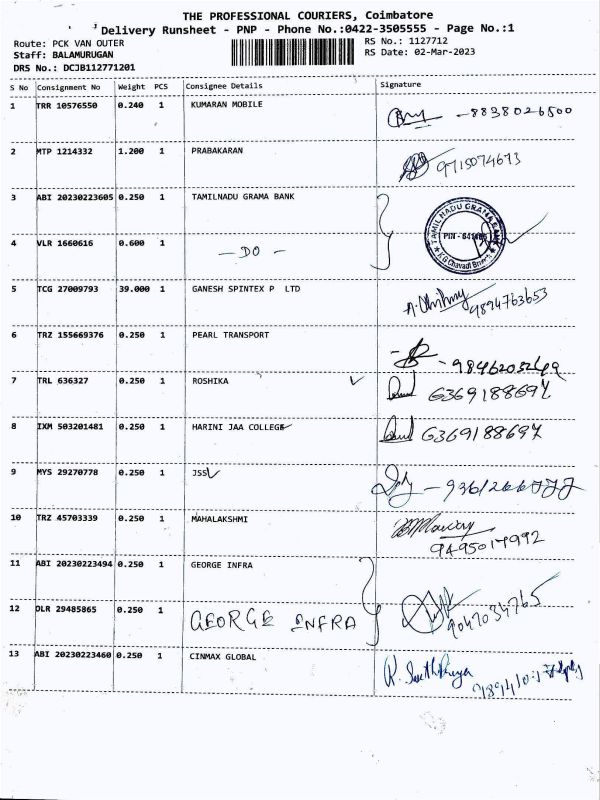 THE PROFESSIONAL COURIERS, Coimbatore
Delivery Runsheet - PNP - Phone No.:0422-3505555 - Page No.:1
Route: PCK VAN OUTER
RS No.: 1127712
Staff: BALAMURUGAN
RS Date: 02-Mar-2023
DRS No.: DCJB112771201
S No Consignment No Weight PCS Consignee Details Signature
1 TRR 10576550 0.240 1 KUMARAN MOBILE
-8838026500
2 MTP 1214332 1.200 1 PRABAKARAN
9715074673
3 ABI 20230223605 0.250 1 TAMILNADU GRAMA BANK
TAMIL NADU GRAMA BANK
4 VLR 1660616 0.600 1 - DO -
K.G Chavadi Branch
5 TCG 27009793 39.000 1 GANESH SPINTEX P LTD
9894763653
6 TRZ 155669376 0.250 1 PEARL TRANSPORT
- 9846203249
7 TRL 636327 0.250 1 ROSHIKA
6369188697
8 IXM 503201481 0.250 1 HARINI JAA COLLEGE
6369188697
9 MYS 29270778 0.250 1 JSS
10 TRZ 45703339 0.250 1 MAHALAKSHMI
9495017992
11 ABI 20230223494 0.250 1 GEORGE INFRA
12 DLR 29485865 0.250 1 GEORGE INFRA
9047034765
13 ABI 20230223460 0.250 1 CINMAX GLOBAL